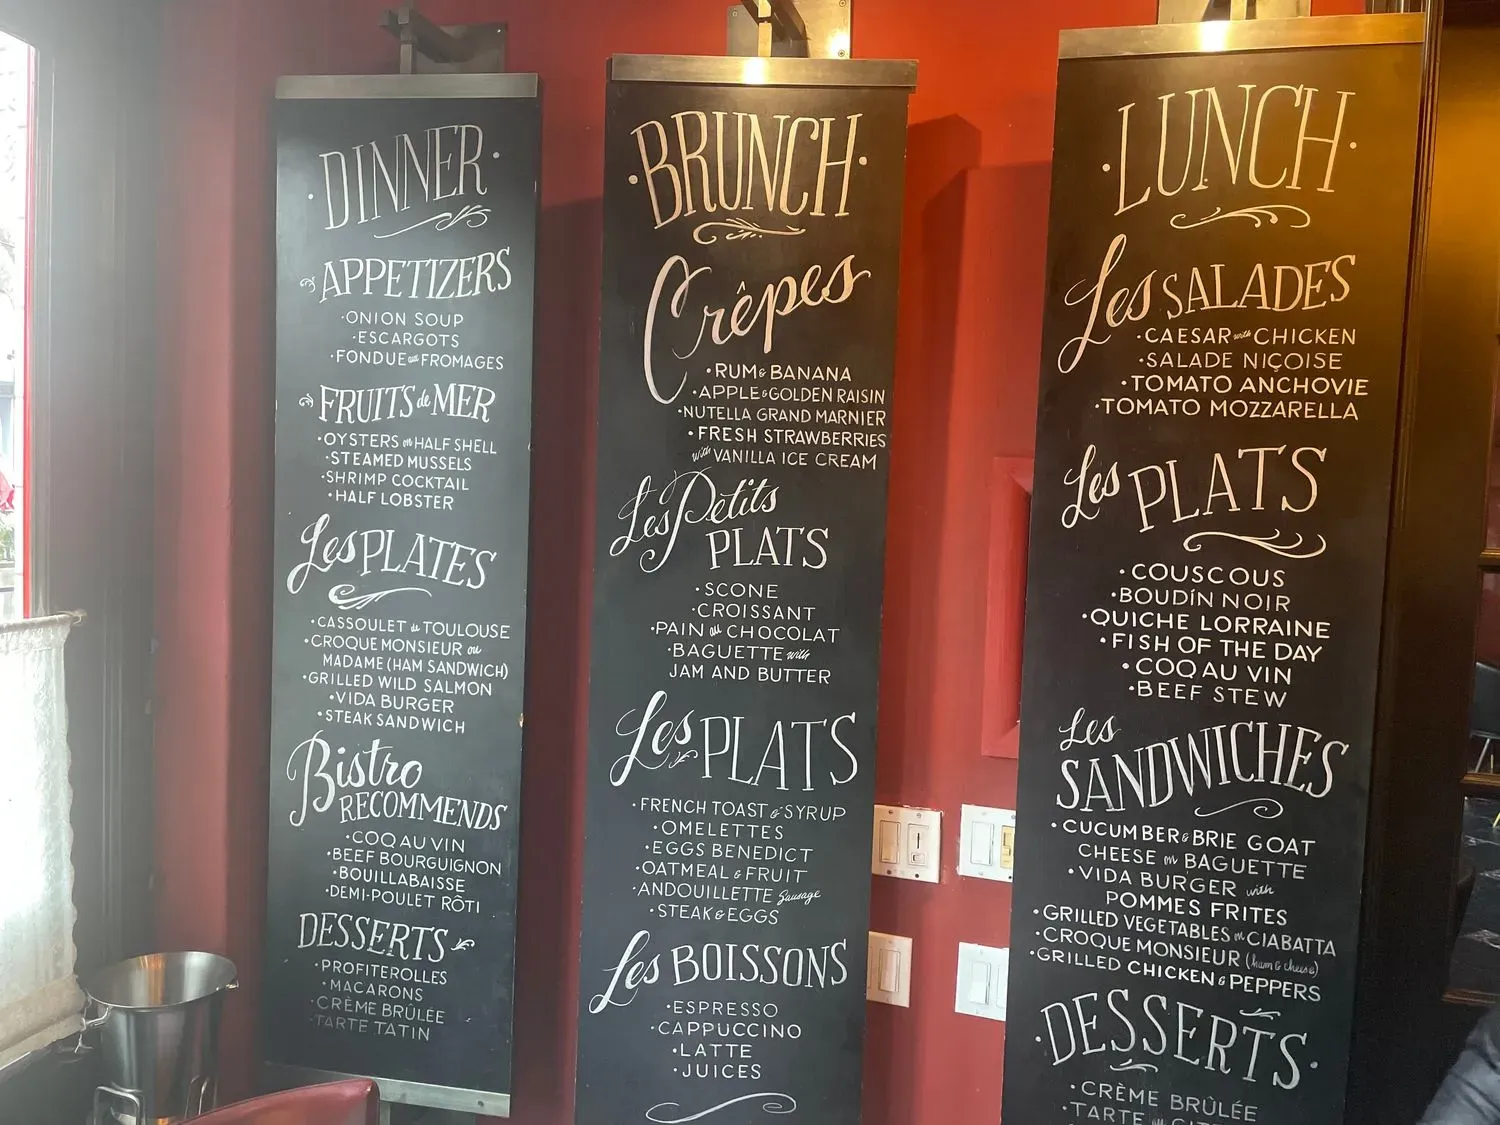 ·DINNER·
APPETIZERS
·ONION SOUP
·ESCARGOTS
·FONDUE aux FROMAGES
FRUITS de MER
·OYSTERS on HALF SHELL
·STEAMED MUSSELS
·SHRIMP COCKTAIL
·HALF LOBSTER
Les PLATES
·CASSOULET de TOULOUSE
·CROQUE MONSIEUR ou
MADAME (HAM SANDWICH)
·GRILLED WILD SALMON
·VIDA BURGER
·STEAK SANDWICH
Bistro
RECOMMENDS
·COQ AU VIN
·BEEF BOURGUIGNON
·BOUILLABAISSE
·DEMI-POULET RÔTI
DESSERTS
·PROFITEROLLES
·MACARONS
·CRÈME BRÛLÉE
·TARTE TATIN
·BRUNCH·
Crêpes
·RUM & BANANA
·APPLE & GOLDEN RAISIN
·NUTELLA GRAND MARNIER
·FRESH STRAWBERRIES
with VANILLA ICE CREAM
Les Petits
PLATS
·SCONE
·CROISSANT
·PAIN au CHOCOLAT
·BAGUETTE with
JAM AND BUTTER
Les PLATS
·FRENCH TOAST & SYRUP
·OMELETTES
·EGGS BENEDICT
·OATMEAL & FRUIT
·ANDOUILLETTE Sausage
·STEAK & EGGS
Les BOISSONS
·ESPRESSO
·CAPPUCCINO
·LATTE
·JUICES
·LUNCH·
Les SALADES
·CAESAR with CHICKEN
·SALADE NIÇOISE
·TOMATO ANCHOVIE
·TOMATO MOZZARELLA
Les PLATS
·COUSCOUS
·BOUDÍN NOIR
·QUICHE LORRAINE
·FISH OF THE DAY
·COQ AU VIN
·BEEF STEW
Les
SANDWICHES
·CUCUMBER & BRIE GOAT
CHEESE on BAGUETTE
·VIDA BURGER with
POMMES FRITES
·GRILLED VEGETABLES on CIABATTA
·CROQUE MONSIEUR (ham & cheese)
·GRILLED CHICKEN & PEPPERS
·DESSERTS·
·CRÈME BRÛLÉE
·TARTE